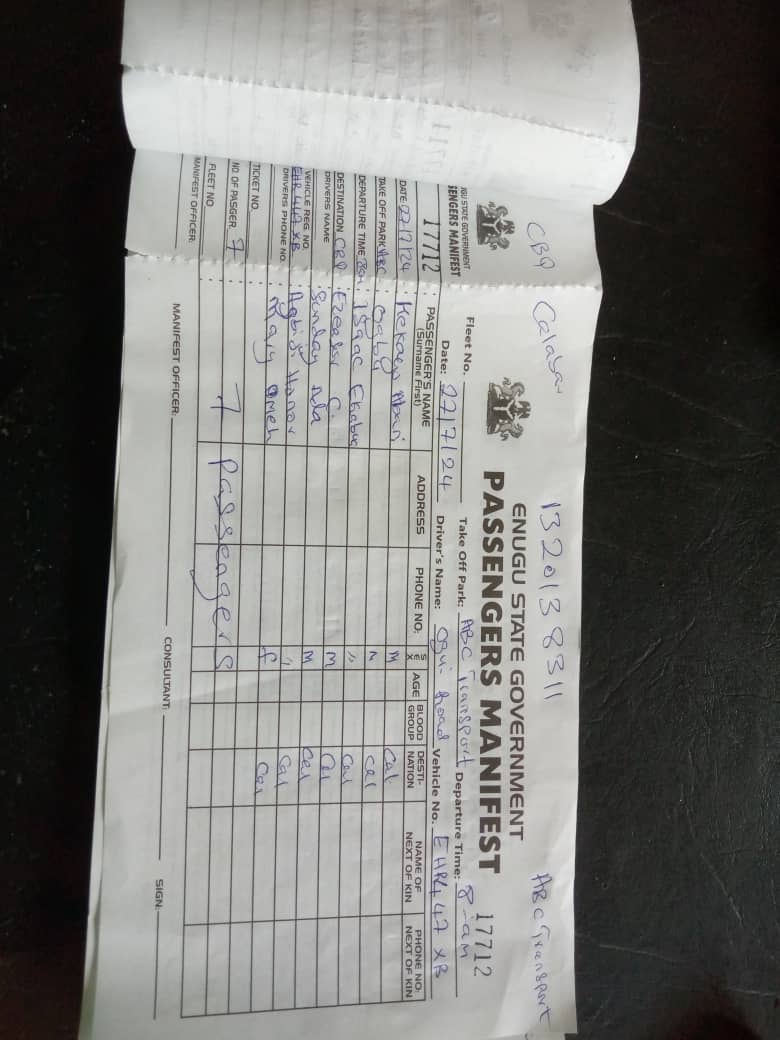 CBQ Calabar 132013 8311 ABC Transport
ENUGU STATE GOVERNMENT
PASSENGERS MANIFEST 17712
Fleet No. Take Off Park: ABC Transport Departure Time: 8-am
Date: 27/7/24 Driver's Name: Ogui- Road Vehicle No. EHR447 XB
PASSENGER'S NAME (Surname First) ADDRESS PHONE NO: SEX AGE BLOOD GROUP DESTI-NATION NAME OF NEXT OF KIN PHONE NO: NEXT OF KIN
M Cal.
M Cal
Isaac " Cal
C. M Cal
Sunday Ada M Cal
" Cal
Mary Omeh F Cal
7 Passengers
MANIFEST OFFICER: CONSULTANT: SIGN:
GU STATE GOVERNMENT
SENGERS MANIFEST
17712
DATE 27/7/24
TAKE OFF PARK ABC
DEPARTURE TIME 8am
DESTINATION
DRIVERS NAME
VEHICLE REG NO.
EHR 447 XB
DRIVERS PHONE NO:
TICKET NO.
NO. OF PASGER. 7
FLEET NO
MANIFEST OFFICER: